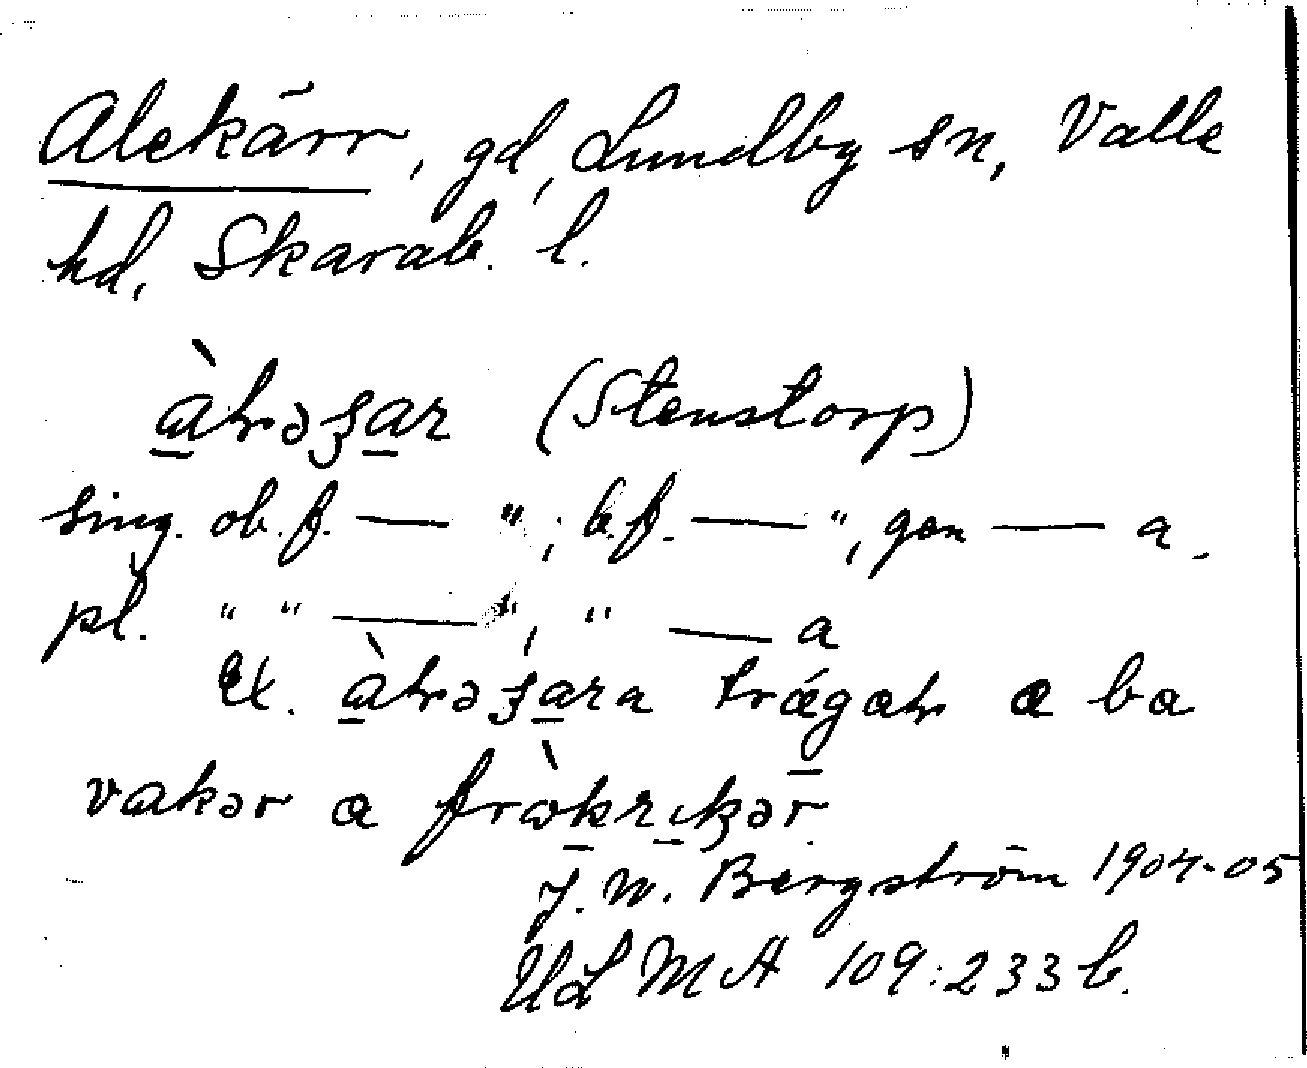 Alekärr, gd, Lundby sn, Valle
hd, Skarab. l.
(Stenstorp)
sing. ob. f. — ", b.f. — ", gen — a.
pl. " " — ", " — a
Ex. a ba
vakər a
J. W. Bergström 1904-05
ULMA 109:233 b.